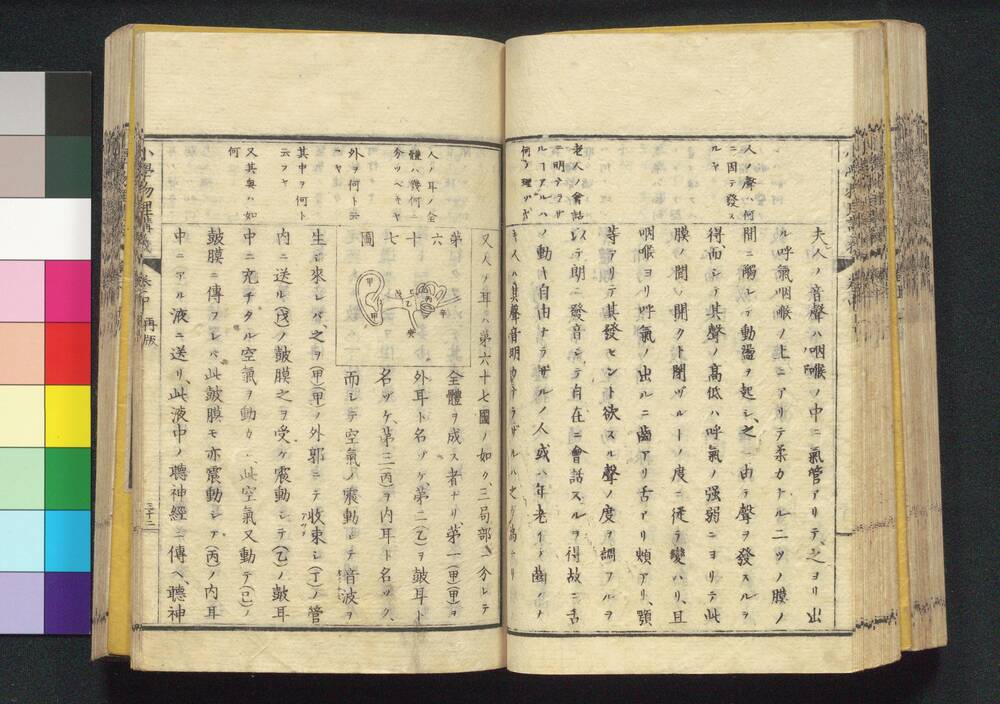 人ノ聲ハ何
ニ因テ發ス
ルヤ
老人ノ會話
ニ明ナラザ
ルーアルハ
何ノ理ゾ
夫人ノ音聲ハ咽喉ノ中ニ氣管アリテ、之ヨリ出
ル呼氣咽喉ノ上ニアリテ柔カナル二ツノ膜ノ
間ニ觸レテ動盪ヲ起シ、之ニ由テ聲ヲ發スルヲ
得而シテ其聲ノ高低ハ呼氣ノ强弱ニヨリテ此
膜ノ間ノ開クト閉ヅルーノ度ニ従テ變ハリ、且
咽喉ヨリ呼氣ノ出ルニ齒アリ舌アリ頬アリ、顎
等アリテ其發セント欲スル聲ノ度ヲ調フルヲ
以テ朗ニ發音シテ自在ニ會話スルヲ得故ニ舌
ノ動キ自由ナラザルノ人或ハ年老イテ齒ノナ
キ人ハ其聲音明カナラザルハ之ガ爲ナリ
人ノ耳ノ全
體ハ幾何ニ
分ツベキヤ
外ヲ何ト云
ヤ
其中ヲ何ト
云フヤ
又其奥ハ如
何
又人ノ耳ハ第六十七圖ノ如ク、三局部ニ分レテ
第六十七圖
甲
乙
丙
全體ヲ成ス者ナリ、第一(甲)(甲)ヲ
外耳ト名ヅケ、第二(乙)ヲ皷耳ト
名ヅケ、第三(丙)ヲ内耳ト名ヅク、
而シテ空氣ノ震動シテ音波ヲ
生ジ來レバ、之ヲ(甲)(甲)ノ外郭ニテ收束シ(丁)ノ管
内ニ送ル(戊)ノ皷膜之ヲ受ケ震動シテ(乙)ノ皷耳
中ニ充チタル空氣ヲ動カシ、此空氣又動テ(己)ノ
皷膜ニ傳フレバ、此皷膜モ亦震動シテ(丙)ノ内耳
中ニアル液ニ送リ、此液中ノ聽神經ニ傳ヘ、聽神
小學物理講義
卷中
再版
三十二